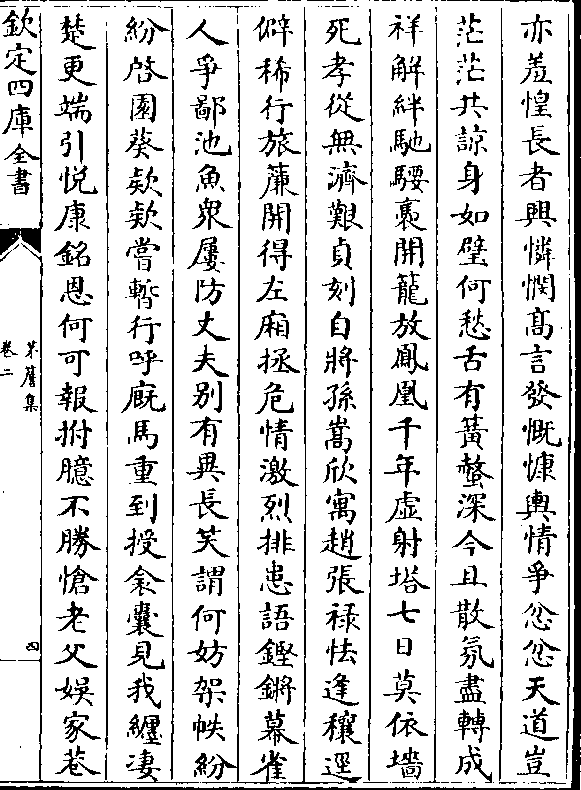 亦羞惶長者興憐憫髙言發慨慷輿情爭忿忿天道豈
茫茫共諒身如璧何愁舌有簧螫深今且散氛盡轉成
祥解絆馳騕褭開籠放鳳凰千年虛射塔七日莫依墻
死孝從無濟艱貞刻自將孫嵩欣寓趙張禄怯逢穰逕
僻稀行旅簾開得左廂拯危情激烈排患語鏗鏘幕雀
人爭鄙池魚衆屢防丈夫别有異長笑謂何妨架帙紛
紛啓園葵欵欵嘗暫行呼廐馬重到授衾囊見我纏凄
楚更端引悦康銘恩何可報拊臆不勝愴老父娱家巷
欽定四庫全書
卷二
四